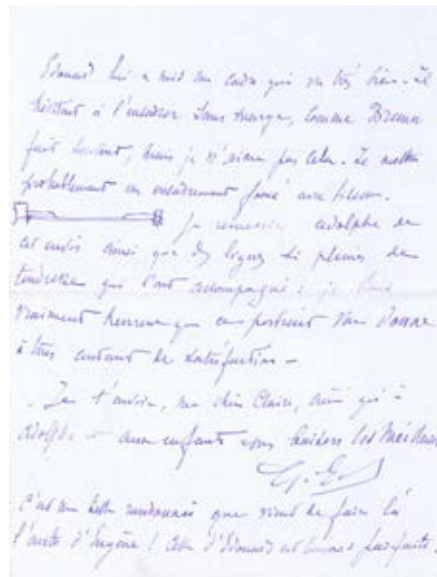 Edouard lui a mis un cadre qui va très bien. Il
hésitait à l'encadrer sans marge, comme
fait souvent, mais je n'aime pas cela. Je
probablement un encadrement avec
Je remercie Adolphe de
cet envoi ainsi que des lignes si pleines de
tendresse qui l'ont accompagné : je
vraiment heureux que ce portrait vous donne
à tous autant de satisfaction –
– Je t'envoie, ma chère Claire, ainsi qu'à
Adolphe et aux enfants nos baisers les meilleurs
C'est une belle randonnée que vient de faire là
l'auto d'Eugène ! d'Edouard est